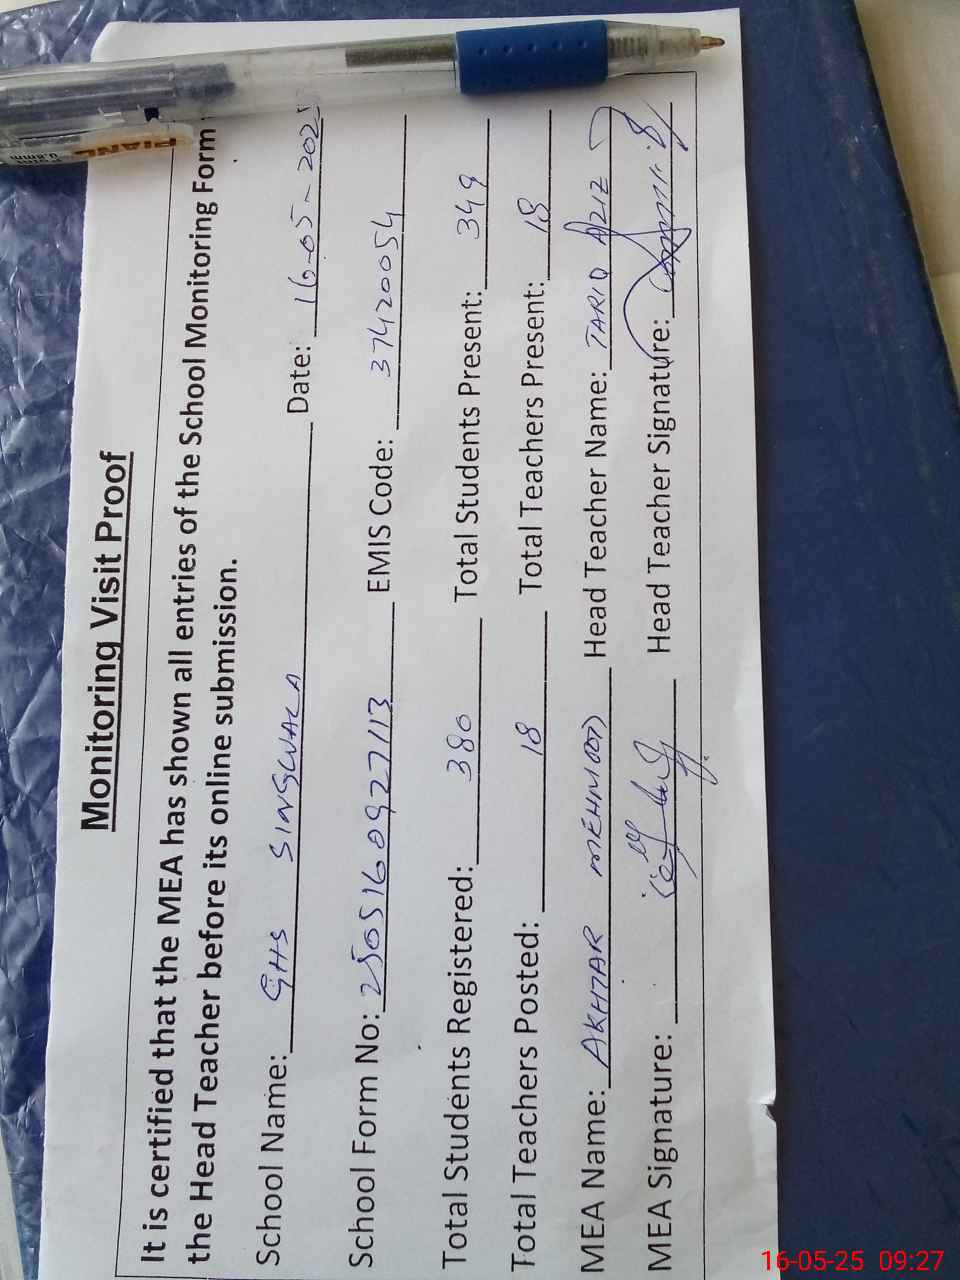 Monitoring Visit Proof
It is certified that the MEA has shown all entries of the School Monitoring Form
the Head Teacher before its online submission.
School Name: GHS SINGWALA Date: 16-05-2025
School Form No: 2505160927113 EMIS Code: 37420054
Total Students Registered: 380 Total Students Present: 349
Total Teachers Posted: 18 Total Teachers Present: 18
MEA Name: AKHTAR MEHMOOD Head Teacher Name: TARIQ AZIZ
MEA Signature: Head Teacher Signature:
PIANO
0.8mm
16-05-25 09:27